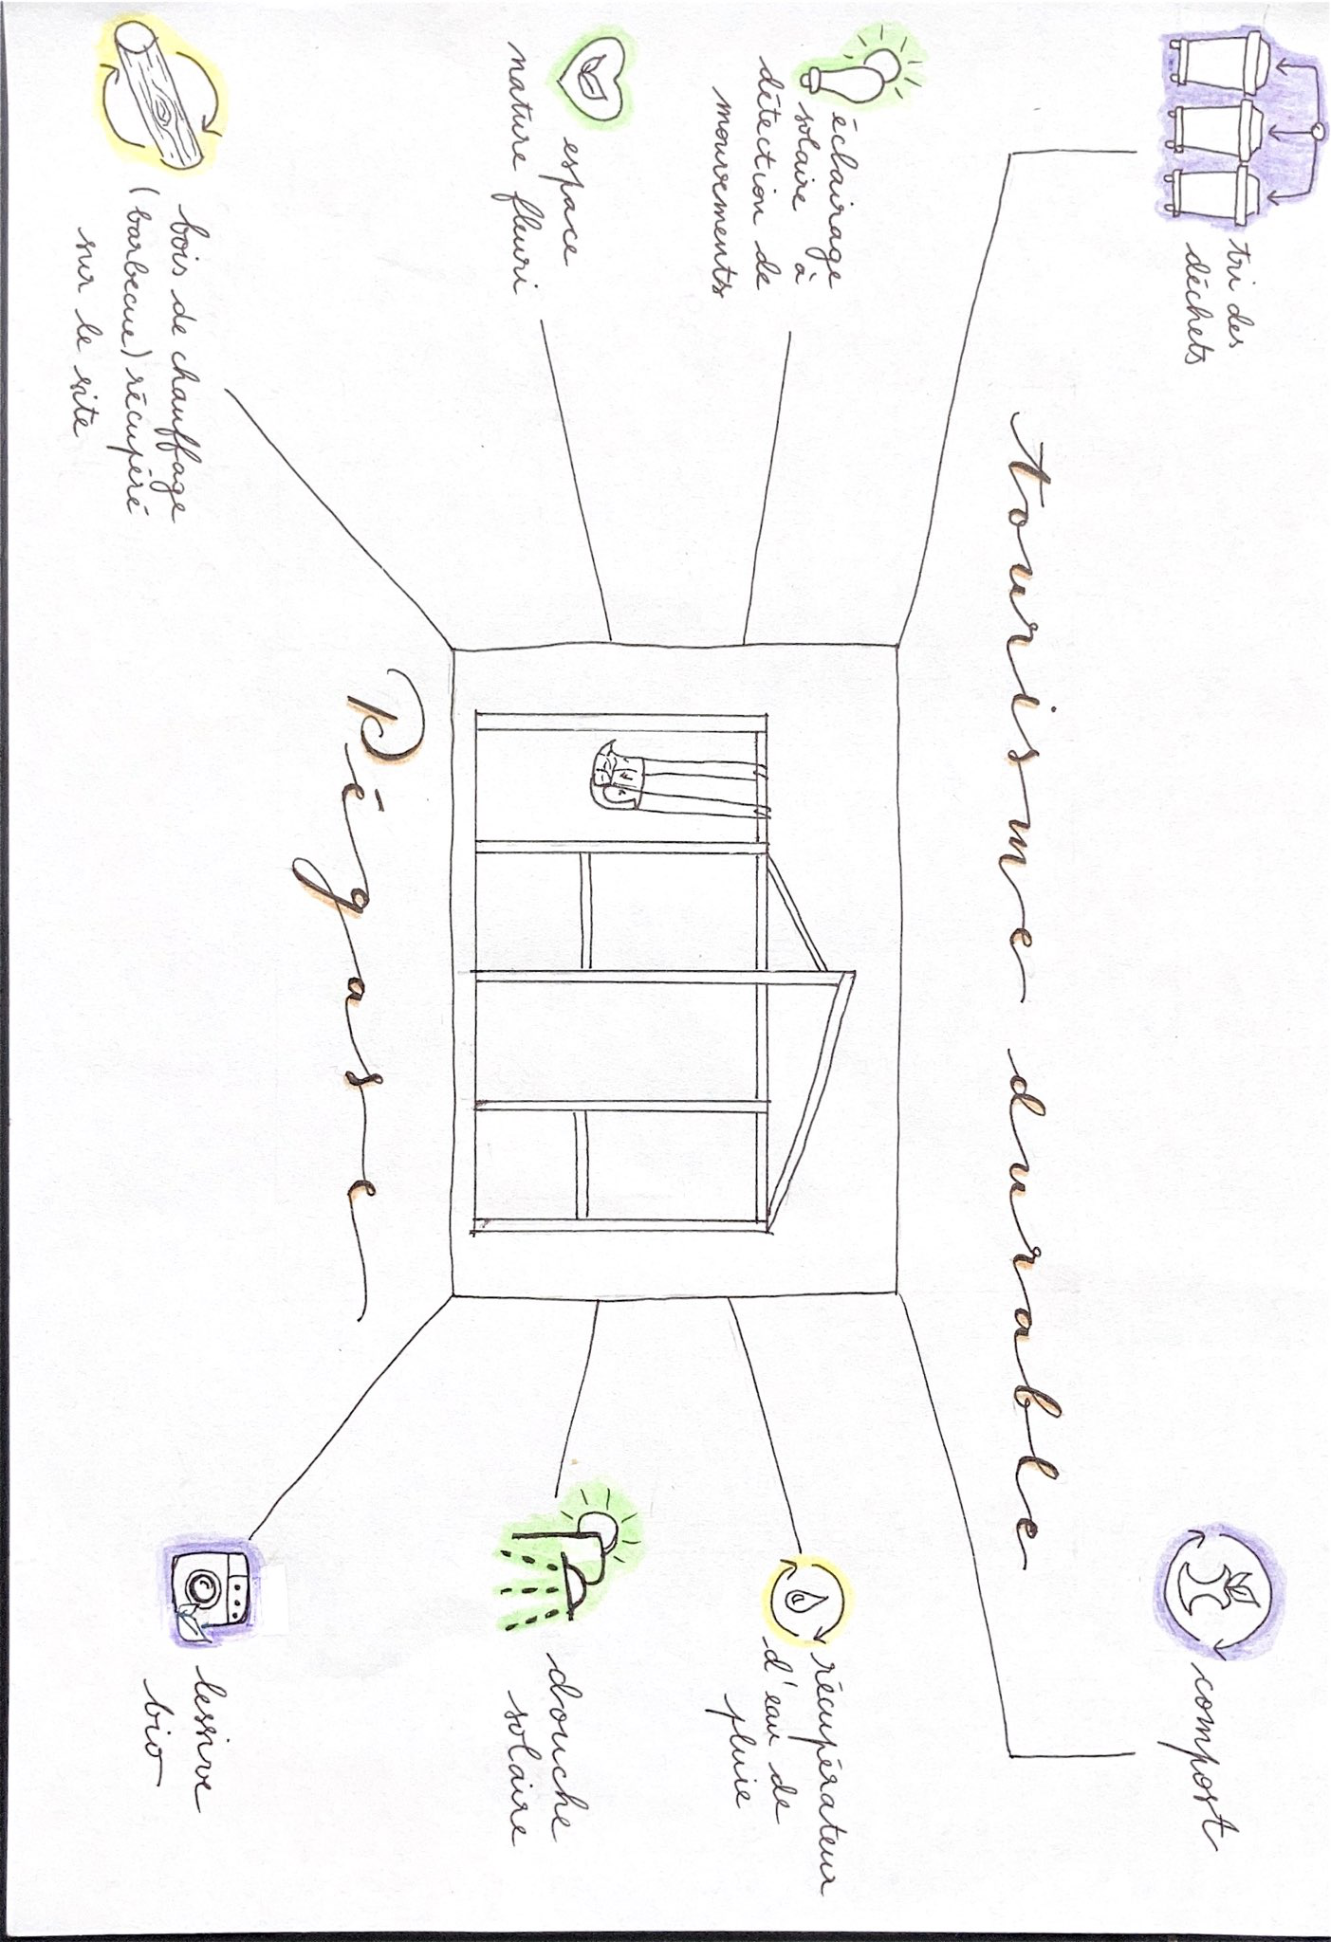 tri des
déchets
compost
tourisme durable
éclairage
solaire à
détection de
mouvements
récupérateur
d'eau de
pluie
espace
nature fleuri
douche
solaire
Pégase
bois de chauffage
(barbecue) récupéré
sur le site
lessive
bio